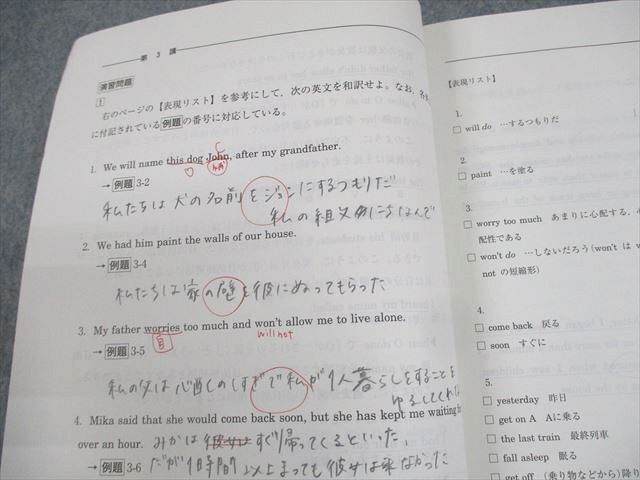 第 3 講
演習問題
1
右のページの【表現リスト】を参考にして、次の英文を和訳せよ。なお、各
に付記されている例題の番号に対応している。
1. We will name this dog John, after my grandfather.
O
C
→ 例題 3-2
私たちは犬の名前をジョンにするつもりだ
私の祖父
2. We had him paint the walls of our house.
→ 例題 3-4
私たちは家の壁を彼にぬってもらった
3. My father worries too much and won't allow me to live alone.
will not
自
→ 例題 3-5
私の父は心配しのしすぎで私が1人暮らしをすることを
ゆるしてくれ
4. Mika said that she would come back soon, but she has kept me waiting
over an hour.
みかは彼女はすぐ帰ってくるといった、
→ 例題 3-6
だが1時間以上まっても彼女は来なかった
【表現リスト】
1.
□ will do …するつもりだ
2.
□ paint …を塗る
3.
□ worry too much あまりに心配する、
配性である
□ won't do …しないだろう（won't は w
not の短縮形）
4.
□ come back 戻る
□ soon すぐに
5.
□ yesterday 昨日
□ get on A Aに乗る
□ the last train 最終列車
□ fall asleep 眠る
□ get off （乗り物などから）降り